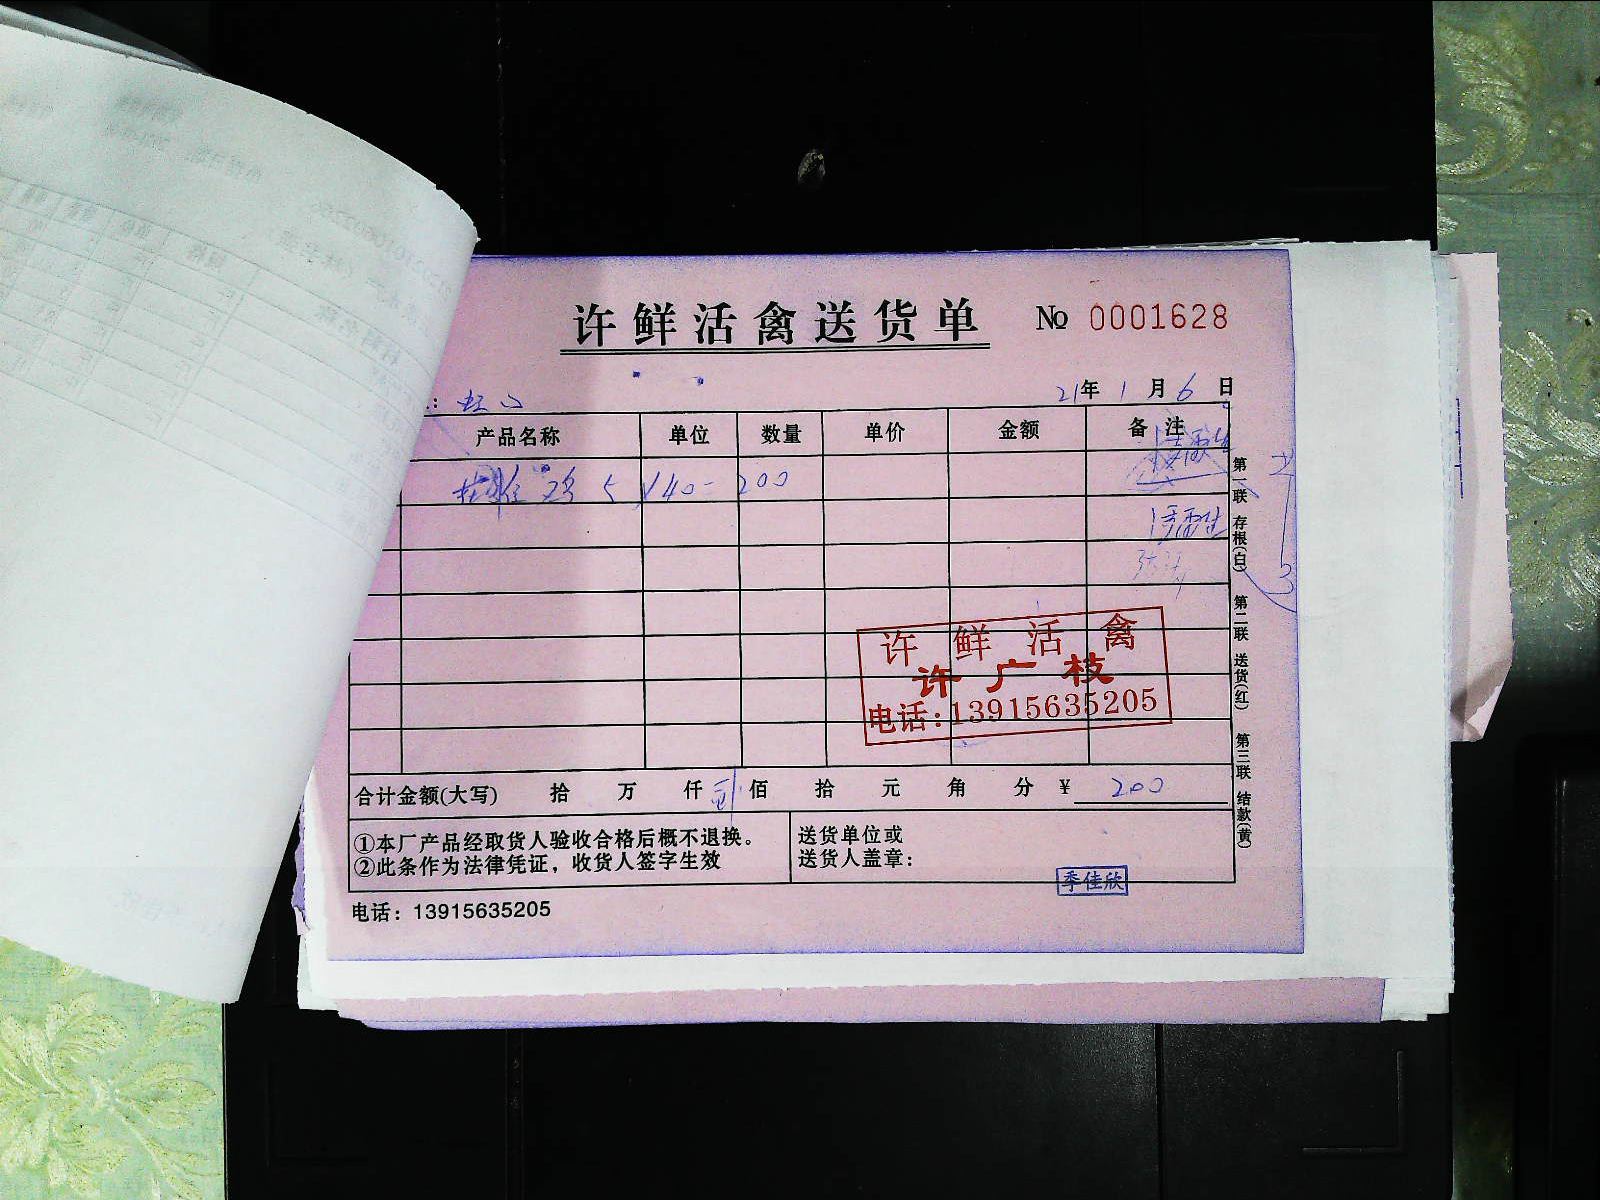 许鲜活禽送货单 № 0001628
21年 1月 6日
产品名称 单位 数量 单价 金额 备注
鸡 5 ×40= 200
许鲜活禽
许广枝
电话:13915635205
合计金额(大写) 拾 万 仟 佰 拾 元 角 分 ¥ 200
①本厂产品经取货人验收合格后概不退换。
②此条作为法律凭证，收货人签字生效
送货单位或
送货人盖章：
季佳欣
电话：13915635205
第一联 存根(白) 第二联 送货(红) 第三联 结款(黄)